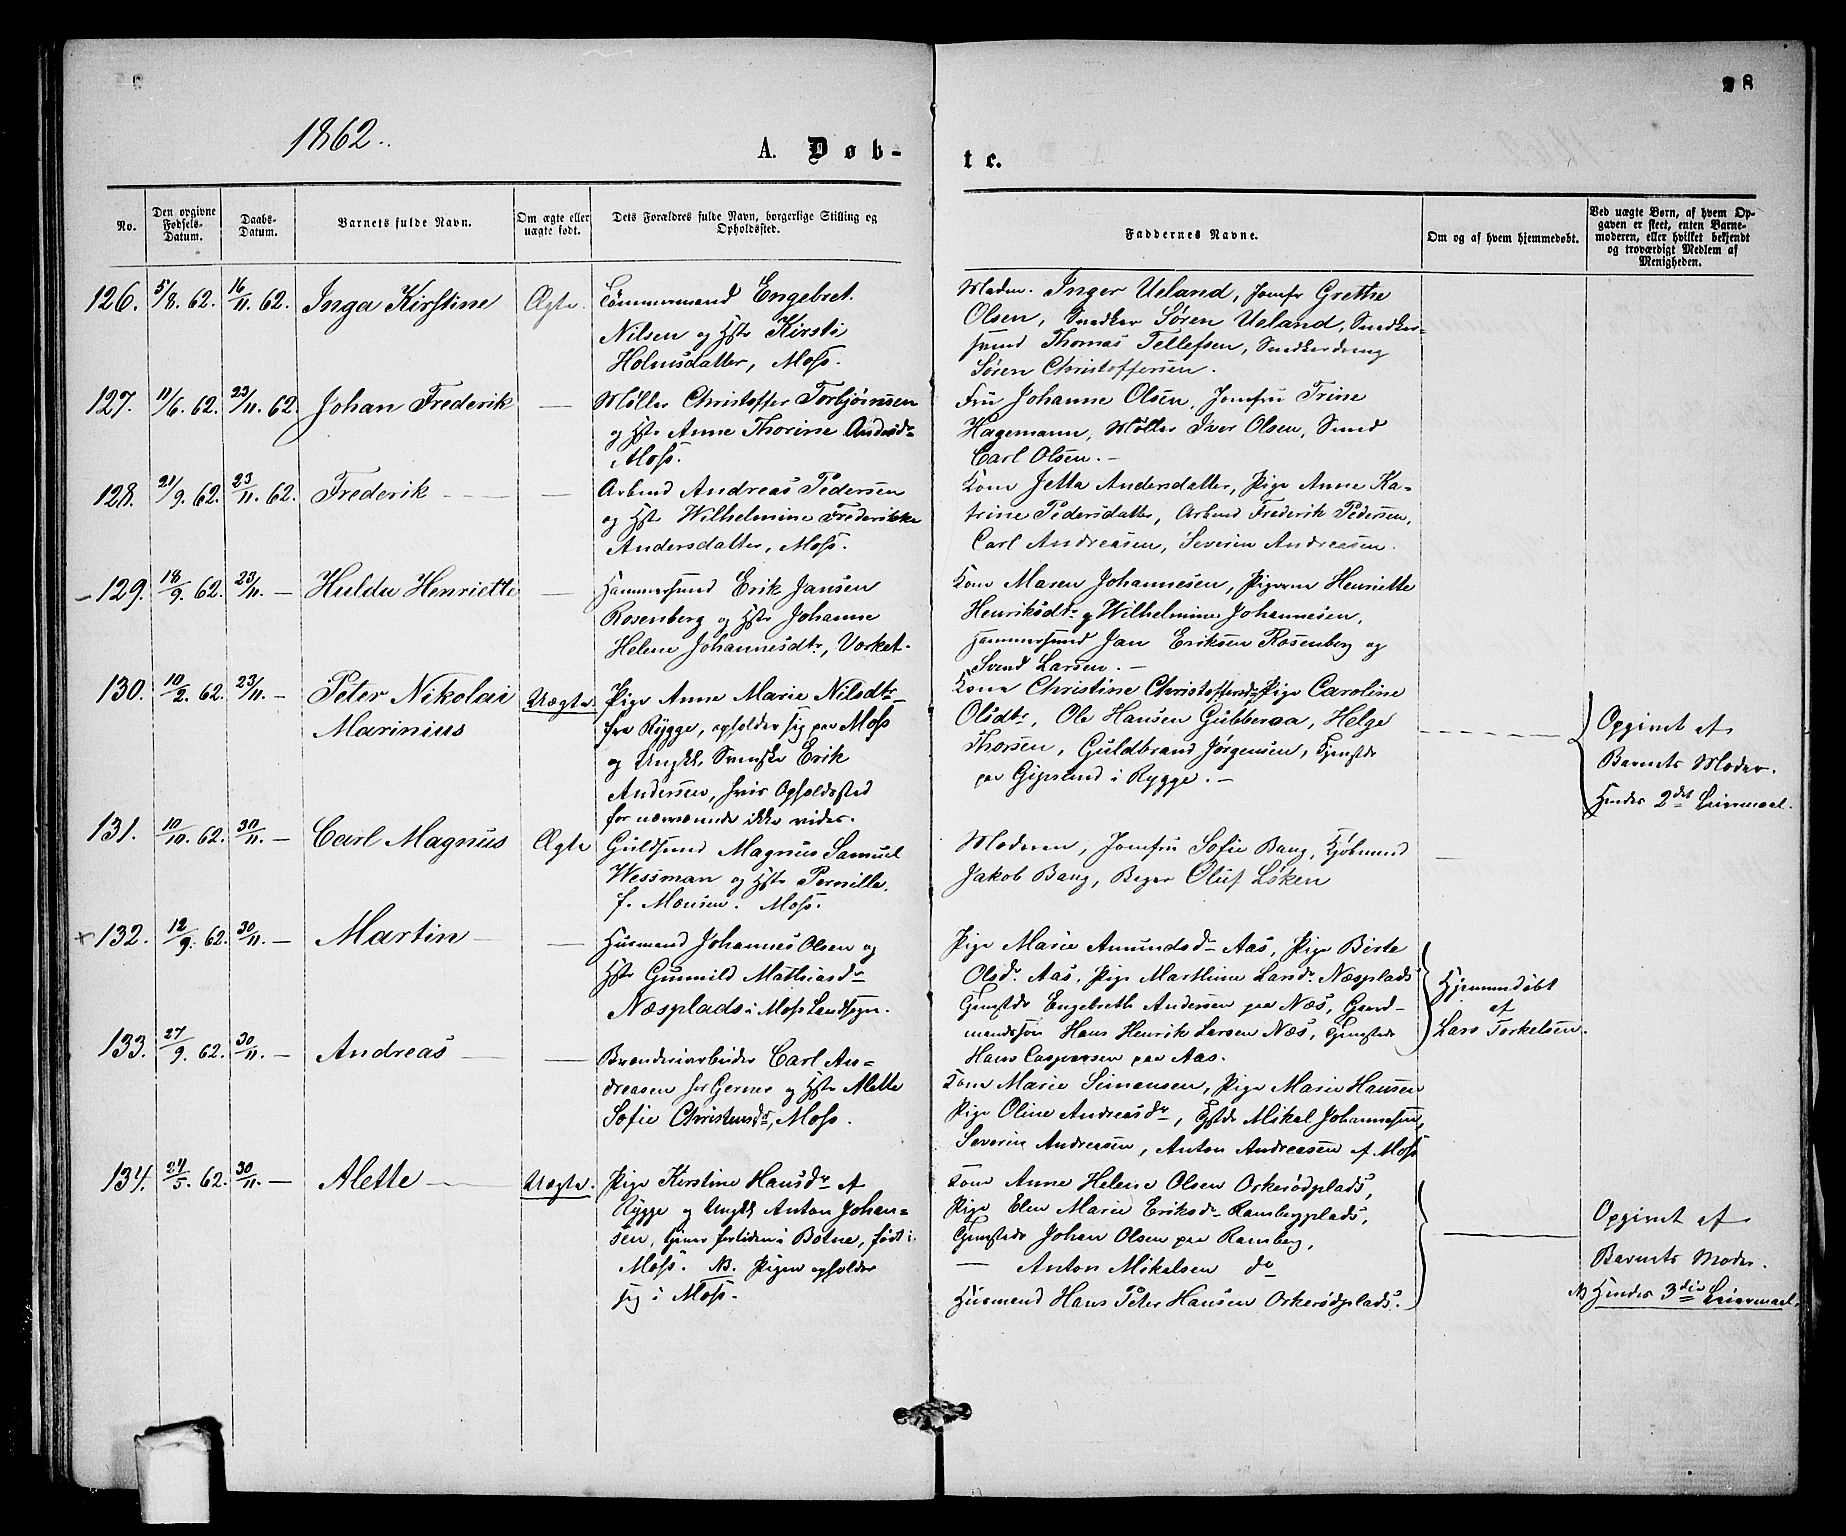 28
1862.
A. Døb-
te.
No.
Den opgivne Fødsels-Datum.
Daabs-Datum.
Barnets fulde Navn.
Om ægte eller uægte født.
Dets Forældres fulde Navn, borgerlige Stilling og Opholdssted.
Faddernes Navne.
Om og af hvem hjemmedøbt.
Ved uægte Børn, af hvem Opgaven er skeet, enten Barnemoderen, eller hvilket bekjendt og troværdigt Medlem af Menigheden.
126. 5/8. 62. 16/11. 62. Inga Kirstine Ægte.
Tømmermand Engebret
Nilsen og Hstr Kirsti
Holmsdatter, Moss.
Madm. Inger Ueland, Jomfr Grethe
Olsen, Snedker Søren Ueland, Snedker-
svend Thomas Tellefsen, Snedkerdreng
Søren Christoffersen.
127. 11/6. 62. 23/11. 62. Johan Frederik —
Møller Christoffer Torbjørnsen
og Hstr Anne Thorine Andersdr
Moss.
Fru Johanne Olsen, Jomfru Trine
Hagemann, Møller Iver Olsen, Svend
Carl Olsen. —
128. 21/9. 62. 23/11. 62. Frederik —
Arbmd Andreas Pedersen
og Hstr Wilhelmine Frederikke
Andersdatter, Moss.
Kone Jetta Andersdatter, Pige Anne Ka-
trine Pedersdatter, Arbmd Frederik Pedersen,
Carl Andreasen, Severin Andreasen.
129. 18/9. 62. 23/11. — Hulda Henriette —
Hammersmd Erik Jansen
Rosenberg og Hstr Johanne
Helene Johannesdtr, Værket.
Kone Maren Johannesen, Pigerne Henriette
Henriksdtr og Wilhelmine Johannesen,
Hammersmd Jan Eriksen Rosenberg og
Svend Larsen. —
130. 10/2. 62. 23/11. — Peter Nikolai
Marinius
Uægte.
Pige Anne Marie Nilsdtr
fra Rygge, opholder sig paa Moss
og Ungkl. Svenske Erik
Andersen, hvis Opholdssted
for nærværende ikke vides.
Kone Christine Christoffersdr Pige Caroline
Olsdtr, Ole Hansen Gubberaa, Helge
Thorsen, Guldbrand Jørgensen, Tjenstde
paa Gipsund i Rygge. —
Opgivet af
Barnets Moder.
Hendes 2det Leiermaal.
131. 10/10. 62. 30/11. — Carl Magnus Ægte
Guldsmd Magnus Samuel
Wessman og Hstr Pernille
f. Monsen. Moss.
Moderen, Jomfru Sofie Bang, Kjøbmand
Jakob Bang, Bager Oluf Løken
—
× 132. 12/9. 62. 30/11. — Martin —
Husmand Johannes Olsen og
Hstr Gunnild Mathiasdr
Næsplads i Moss Landsogn.
Pige Marie Amundsdr Aas, Pige Birte
Olsdr Aas, Pige Marthine Larsdr Næsplads
Tjenstde Engebreth Andersen paa Næs, Gaard-
mandssøn Hans Henrik Larsen Næs, Tjenstde
Hans Caspersen paa Aas.
Hjemmedøbt
af
Lars Torkelsen.
133. 27/9. 62. 30/11. — Andreas —
Brænderiarbeider Carl An-
dreasen for Gerner og Hstr Alette
Sofie Christensdr, Moss.
Kone Marie Simensen, Pige Marie Hansen
Pige Oline Andreasdr, Tjstde Mikal Johannesen,
Severin Andreasen, Anton Andreasen af Moss
134. 24/5. 62. 30/11. — Alette —
Uægte.
Pige Kirstine Hansdr af
Rygge og Ungkl Anton Johan-
sen, tjener fortiden i Botne, født i
Moss. NB. Pigen opholder
sig i Moss.
Kone Anne Helene Olsen Orkerødplads,
Pige Elen Marie Eriksdr Rambergplads,
Tjenstede Johan Olsen paa Ramberg,
— Anton Mikelsen do
Husmand Hans Peter Hansen Orkerødplads.
Opgivet af
Barnets Moder.
NB Hendes 3die Leiermaal.